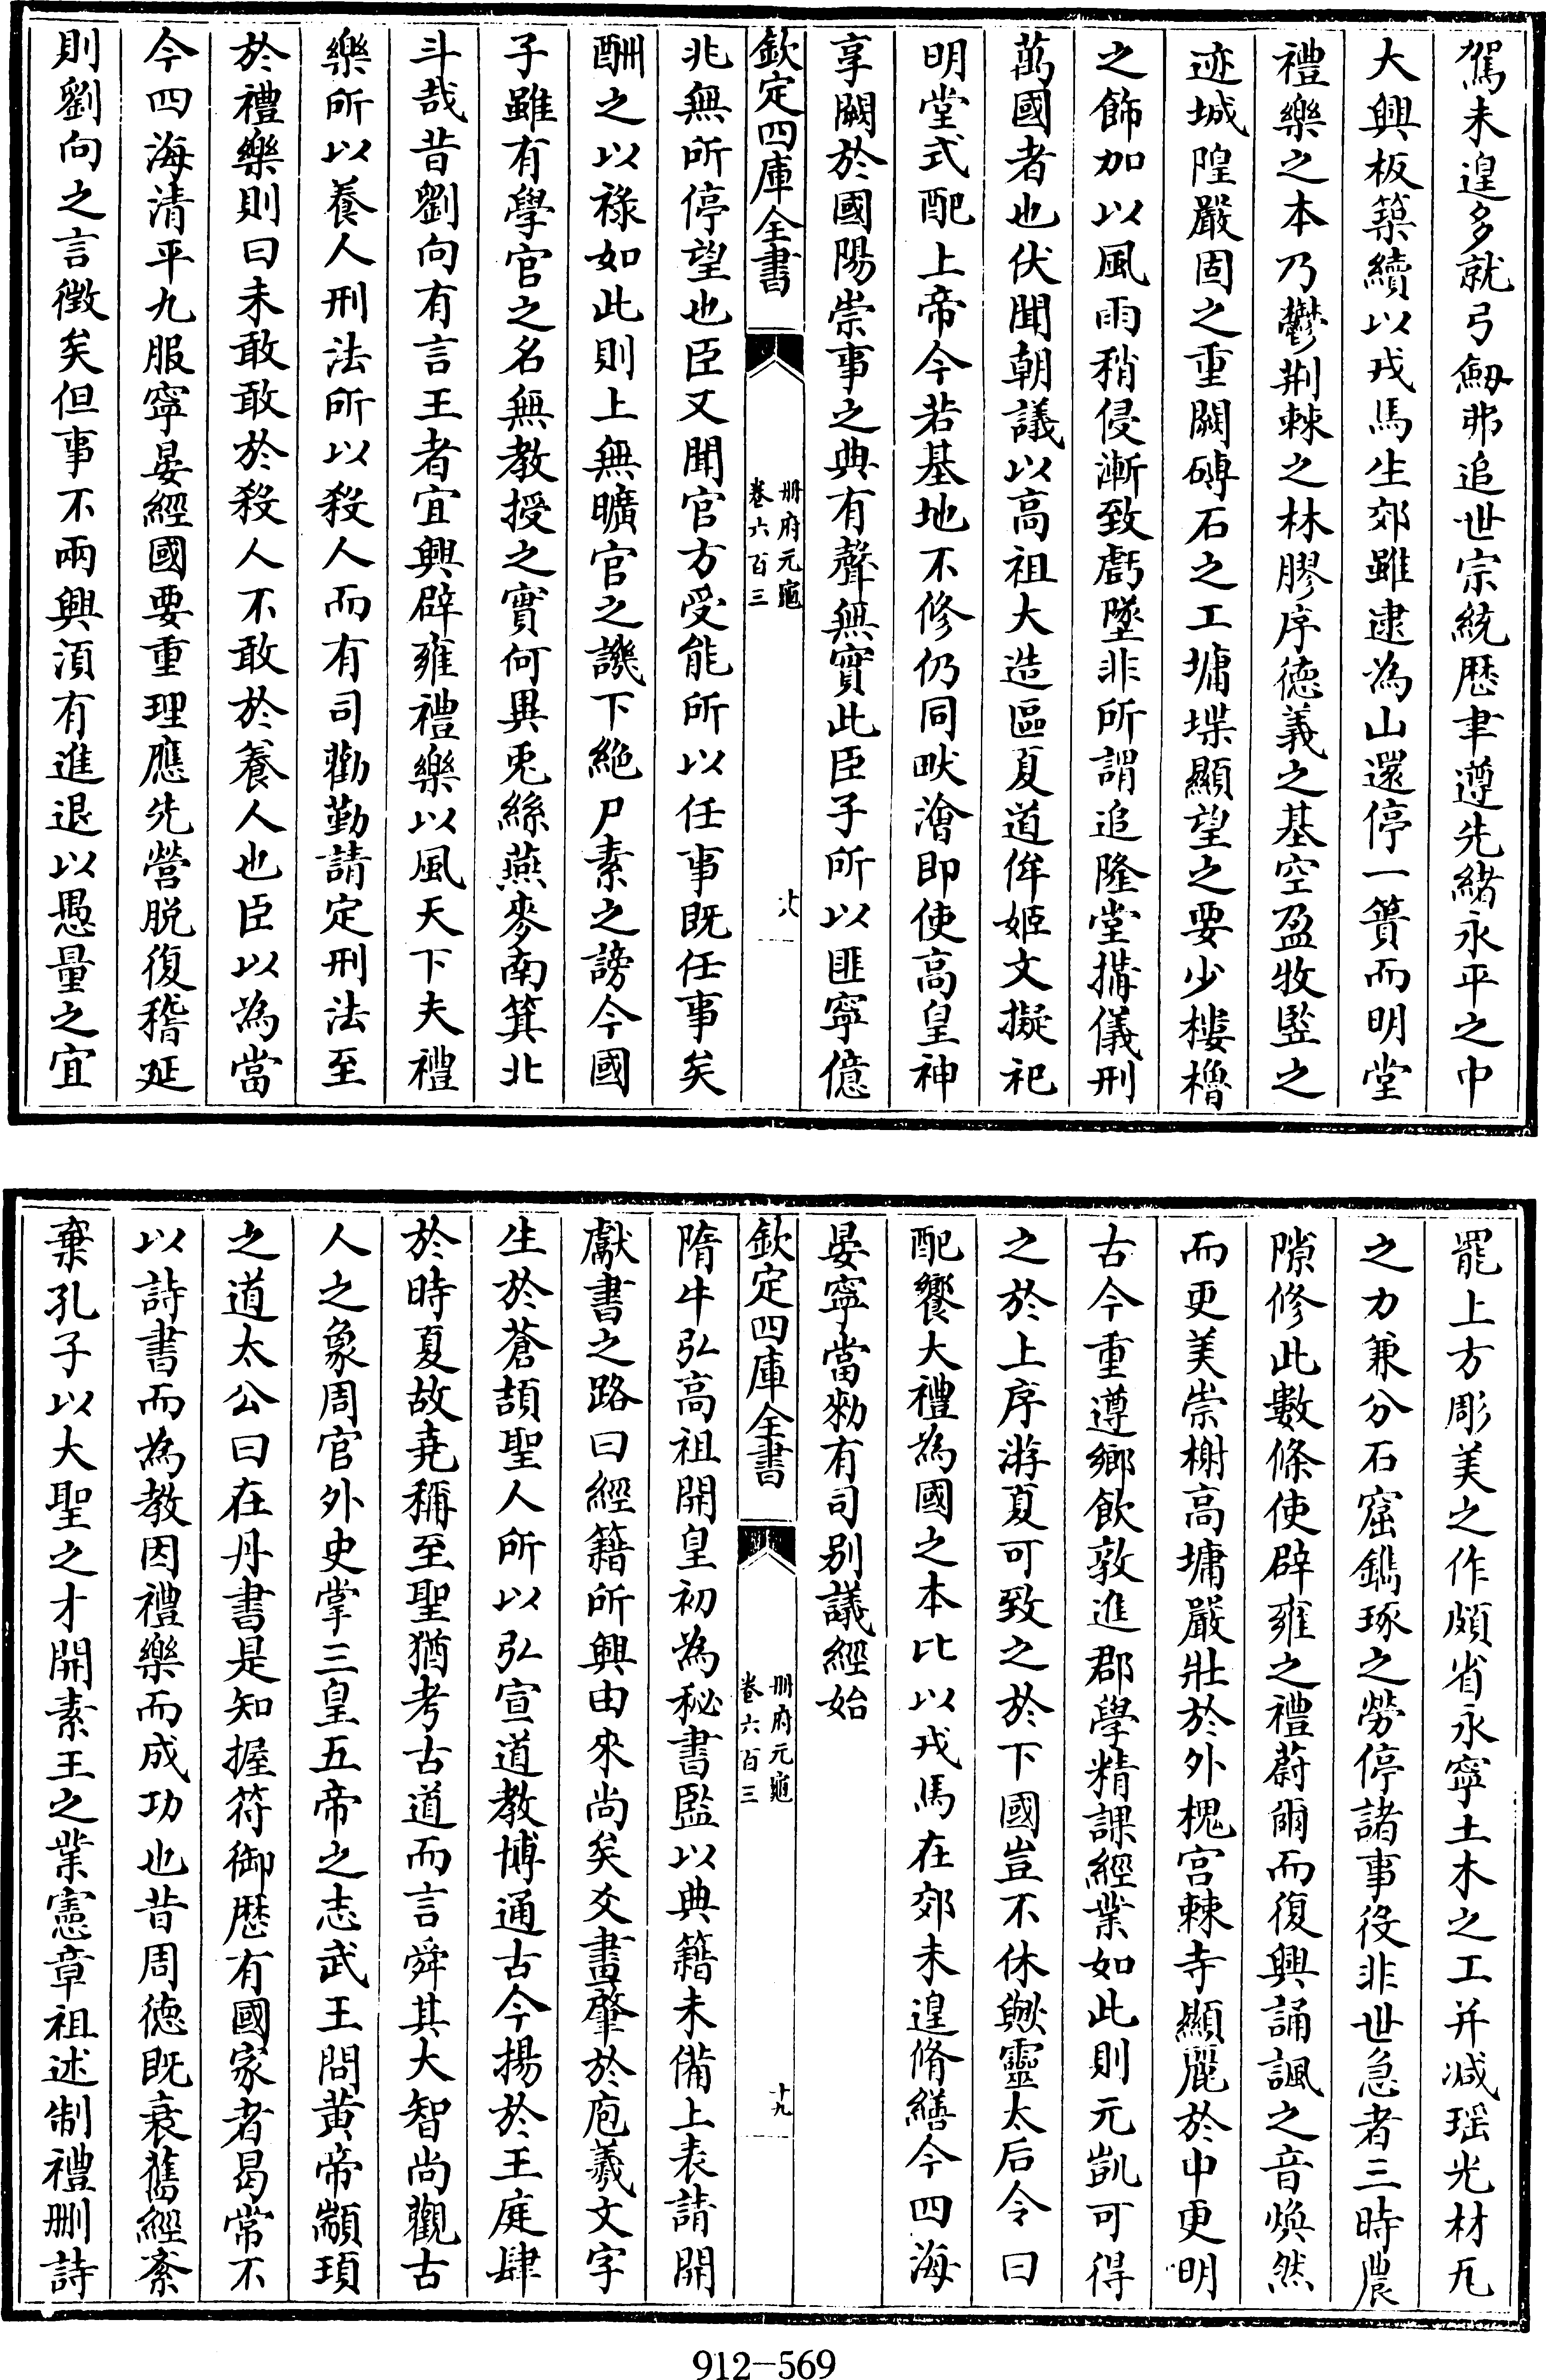 駕未遑多就弓劔弗追世宗統歴聿遵先緒永平之中
大興板築續以戎馬生郊雖逮為山還停一簣而明堂
禮樂之本乃鬱荆棘之林膠序徳義之基空盈牧豎之
迹城隍嚴固之重闕磚石之工墉堞顯望之要少樓櫓
之飾加以風雨稍侵漸致虧墜非所謂追隆堂搆儀刑
萬國者也伏聞朝議以高祖大造區夏道侔姬文擬祀
明堂式配上帝今若基地不修仍同畎澮即使高皇神
享闕於國陽崇事之典有聲無實此臣子所以匪寧億
欽定四庫全書
冊府元龜
卷六百三
十八
兆無所停望也臣又聞官方受能所以任事既任事矣
酬之以祿如此則上無曠官之譏下絶尸素之謗今國
子雖有學官之名無教授之實何異兎絲燕麥南箕北
斗哉昔劉向有言王者宜興辟雍禮樂以風天下夫禮
樂所以養人刑法所以殺人而有司勸勤請定刑法至
於禮樂則曰未敢敢於殺人不敢於養人也臣以為當
今四海清平九服寧晏經國要重理應先營脱復稽延
則劉向之言徵矣但事不兩興湏有進退以愚量之宜
罷上方彫美之作頗省永寧土木之工并减瑶光材瓦
之力兼分石窟鐫琢之勞停諸事役非世急者三時農
隙修此數條使辟雍之禮蔚爾而復興誦諷之音煥然
而更美崇榭高墉嚴壯於外槐宫棘寺顯麗於中更明
古今重遵鄉飲敦進郡學精課經業如此則元凱可得
之於上序游夏可致之於下國豈不休歟靈太后令曰
配饗大禮為國之本比以戎馬在郊未遑脩繕今四海
晏寧當勑有司别議經始
欽定四庫全書
冊府元龜
卷六百三
十九
隋牛弘高祖開皇初為秘書監以典籍未備上表請開
獻書之路曰經籍所興由來尚矣爻畫肇於庖羲文字
生於蒼頡聖人所以弘宣道教博通古今揚於王庭肆
於時夏故堯稱至聖猶考古道而言舜其大智尚觀古
人之象周官外史掌三皇五帝之志武王問黄帝顓頊
之道太公曰在丹書是知握符御歴有國家者曷常不
以詩書而為教因禮樂而成功也昔周徳既衰舊經紊
棄孔子以大聖之才開素王之業憲章祖述制禮刪詩
912-569